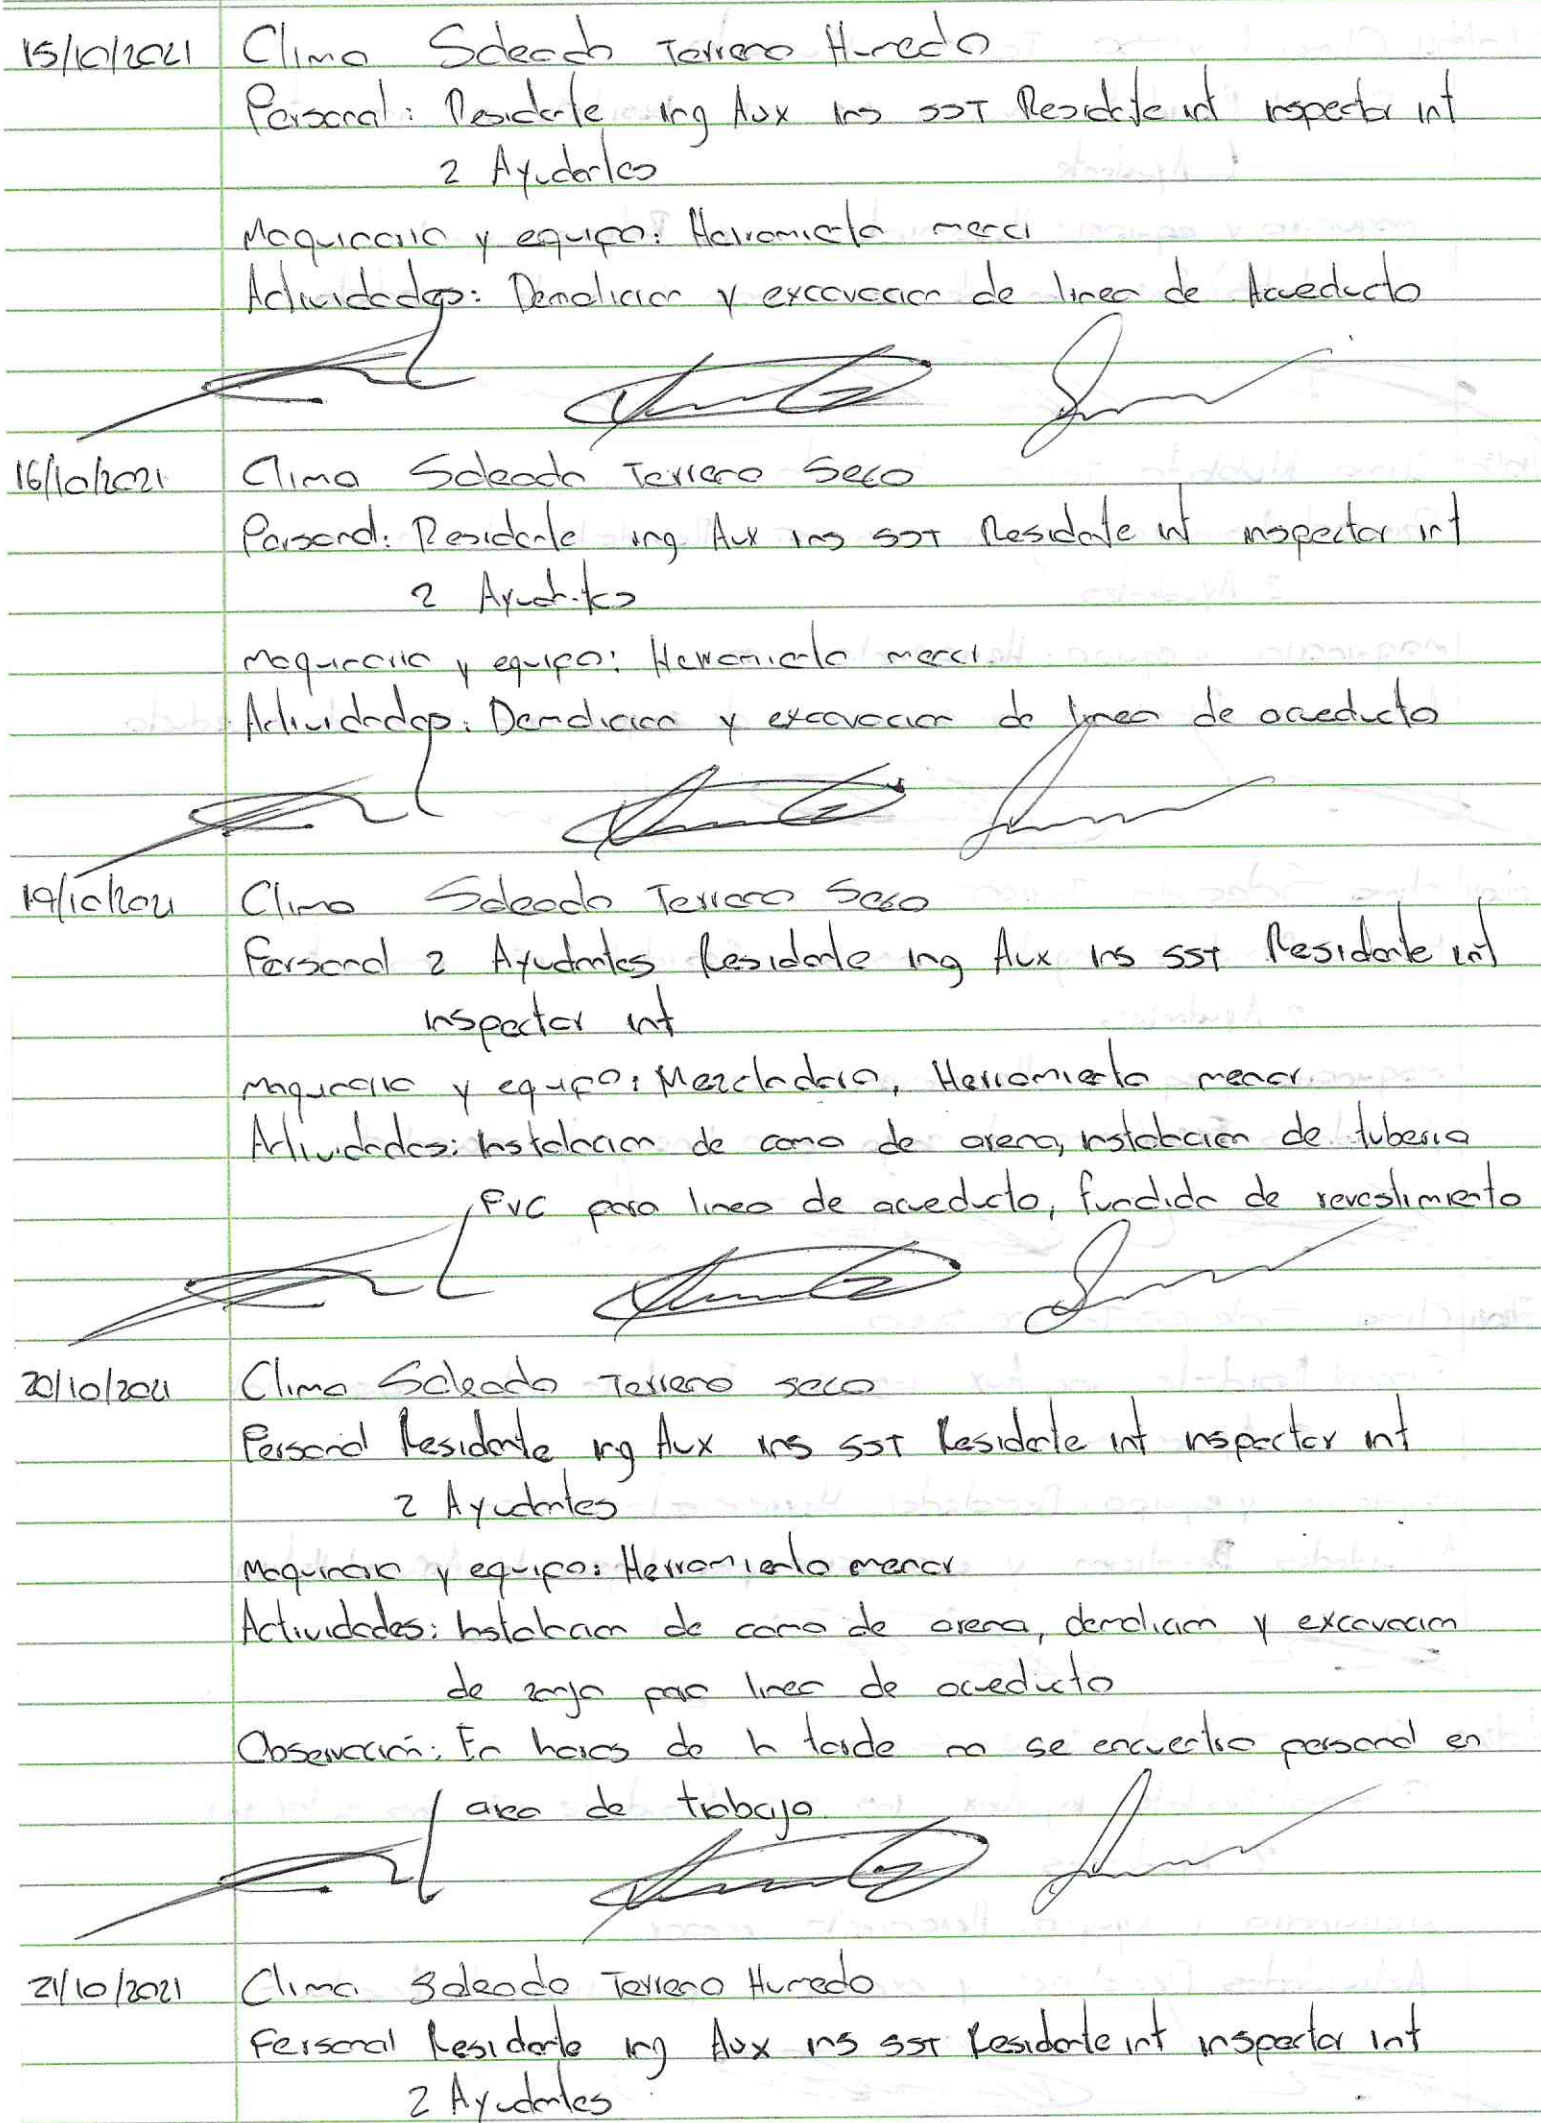 15/10/2021 Clima Soleado Terreno Humedo
Personal: Residente ing Aux ins SST Residente int inspector int
2 Ayudantes
Maquinaria y equipo: Herramienta menor
Actividades: Demolicion y excavacion de linea de Acueducto
16/10/2021 Clima Soleado Terreno Seco
Personal: Residente ing Aux ins SST Residente int inspector int
2 Ayudantes
Maquinaria y equipo: Herramienta menor
Actividades: Demolicion y excavacion de linea de acueducto
19/10/2021 Clima Soleado Terreno Seco
Personal 2 Ayudantes Residente ing Aux ins SST Residente int
inspector int
Maquinaria y equipo: Mezcladora, Herramienta menor
Actividades: Instalacion de cama de arena, instalacion de tuberia
PVC para linea de acueducto, fundida de revestimiento
20/10/2021 Clima Soleado Terreno seco
Personal Residente ing Aux ins SST Residente int inspector int
2 Ayudantes
Maquinaria y equipo: Herramienta menor
Actividades: Instalacion de cama de arena, demolicion y excavacion
de zanja para linea de acueducto
Observación: En horas de la tarde no se encuentra personal en
area de trabajo.
21/10/2021 Clima Soleado Terreno Humedo
Personal Residente ing Aux ins SST Residente int inspector int
2 Ayudantes